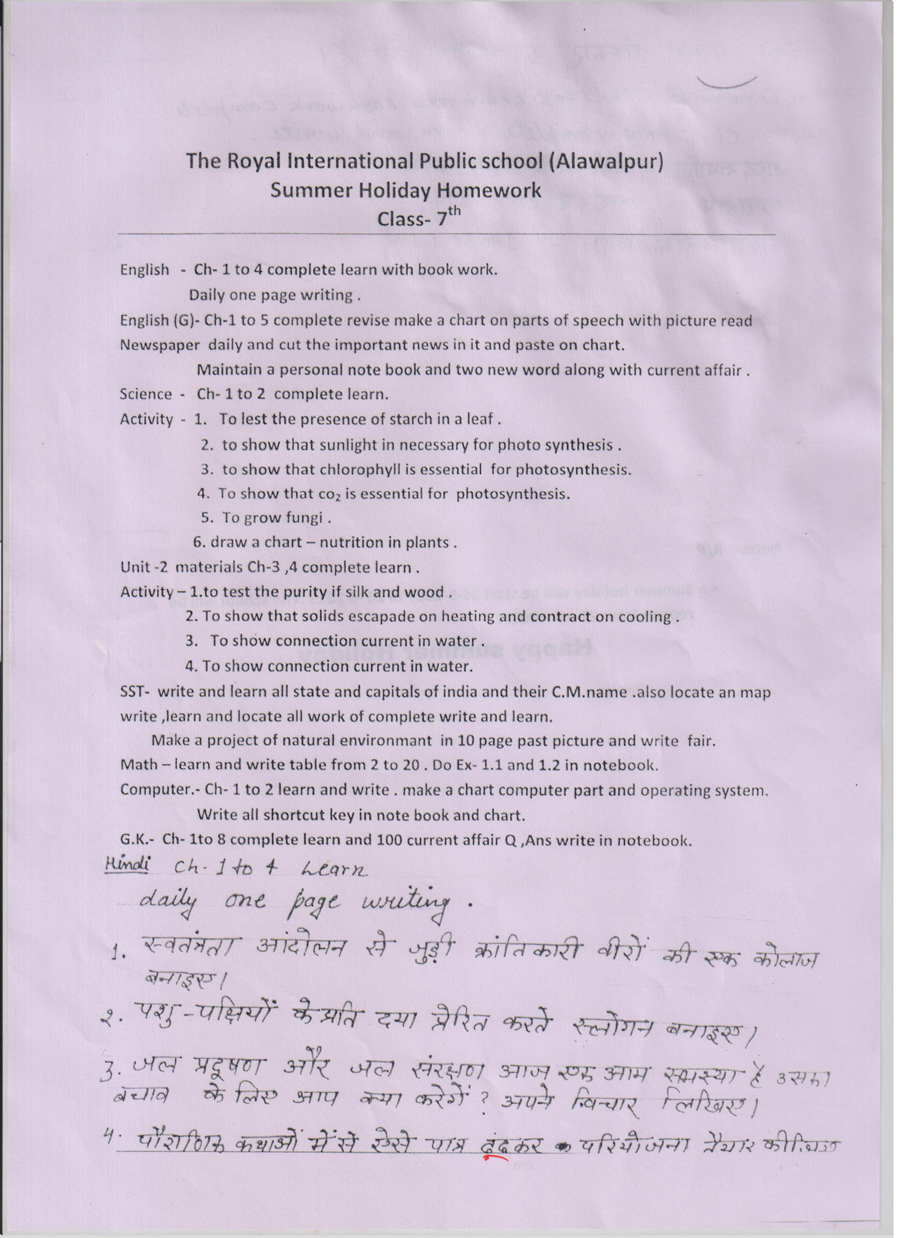 The Royal International Public school (Alawalpur)
Summer Holiday Homework
Class- 7th
English - Ch- 1 to 4 complete learn with book work.
Daily one page writing .
English (G)- Ch-1 to 5 complete revise make a chart on parts of speech with picture read
Newspaper daily and cut the important news in it and paste on chart.
Maintain a personal note book and two new word along with current affair .
Science - Ch- 1 to 2 complete learn.
Activity - 1. To lest the presence of starch in a leaf .
2. to show that sunlight in necessary for photo synthesis .
3. to show that chlorophyll is essential for photosynthesis.
4. To show that co₂ is essential for photosynthesis.
5. To grow fungi .
6. draw a chart – nutrition in plants .
Unit -2 materials Ch-3 ,4 complete learn .
Activity – 1.to test the purity if silk and wood .
2. To show that solids escapade on heating and contract on cooling .
3. To show connection current in water .
4. To show connection current in water.
SST- write and learn all state and capitals of india and their C.M.name .also locate an map
write ,learn and locate all work of complete write and learn.
Make a project of natural environmant in 10 page past picture and write fair.
Math – learn and write table from 2 to 20 . Do Ex- 1.1 and 1.2 in notebook.
Computer.- Ch- 1 to 2 learn and write . make a chart computer part and operating system.
Write all shortcut key in note book and chart.
G.K.- Ch- 1to 8 complete learn and 100 current affair Q ,Ans write in notebook.
Hindi Ch- 1 to 4 Learn
daily one page writing .
1. स्वतंत्रता आंदोलन से जुड़ी क्रांतिकारी वीरों की एक कोलाज
बनाइए।
२. पशु-पक्षियों के प्रति दया प्रेरित करते स्लोगन बनाइए।
3. जल प्रदूषण और जल संरक्षण आज एक आम समस्या है उसका
बचाव के लिए आप क्या करेगें ? अपने विचार लिखिए।
4. पौराणिक कथाओं में से ऐसे पात्र ढूंढकर परियोजना तैयार कीजिए